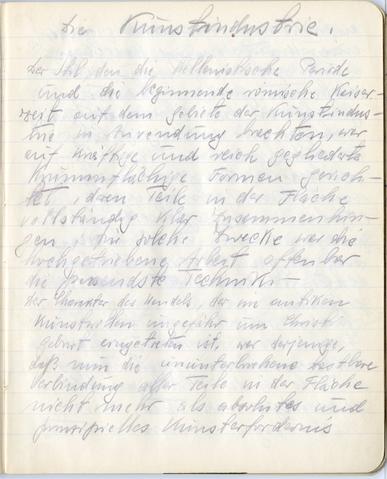 Die Kunstindustrie.
Der Stil den die Hellenistische Periode
und die beginnende römische Kaiser-
zeit auf dem Gebiete der Kunstindus-
trie in Anwendung brachten, war
auf kräftige und reich gegliederte
krummflächige Formen gerich-
tet, deren Teile in der Fläche
vollständig klar zusammenhin-
gen. Für solche Zwecke war die
hochgetriebene Arbeit offenbar
die passendste Technik –
Der Charakter des Wandels, der im antiken
Kunstwollen ungefähr um Christi
Geburt eingetreten ist, war derjenige,
daß nun die ununterbrochene tastbare
Verbindung aller Teile in der Fläche
nicht mehr als absolutes und
prinzipielles Kunsterfordernis